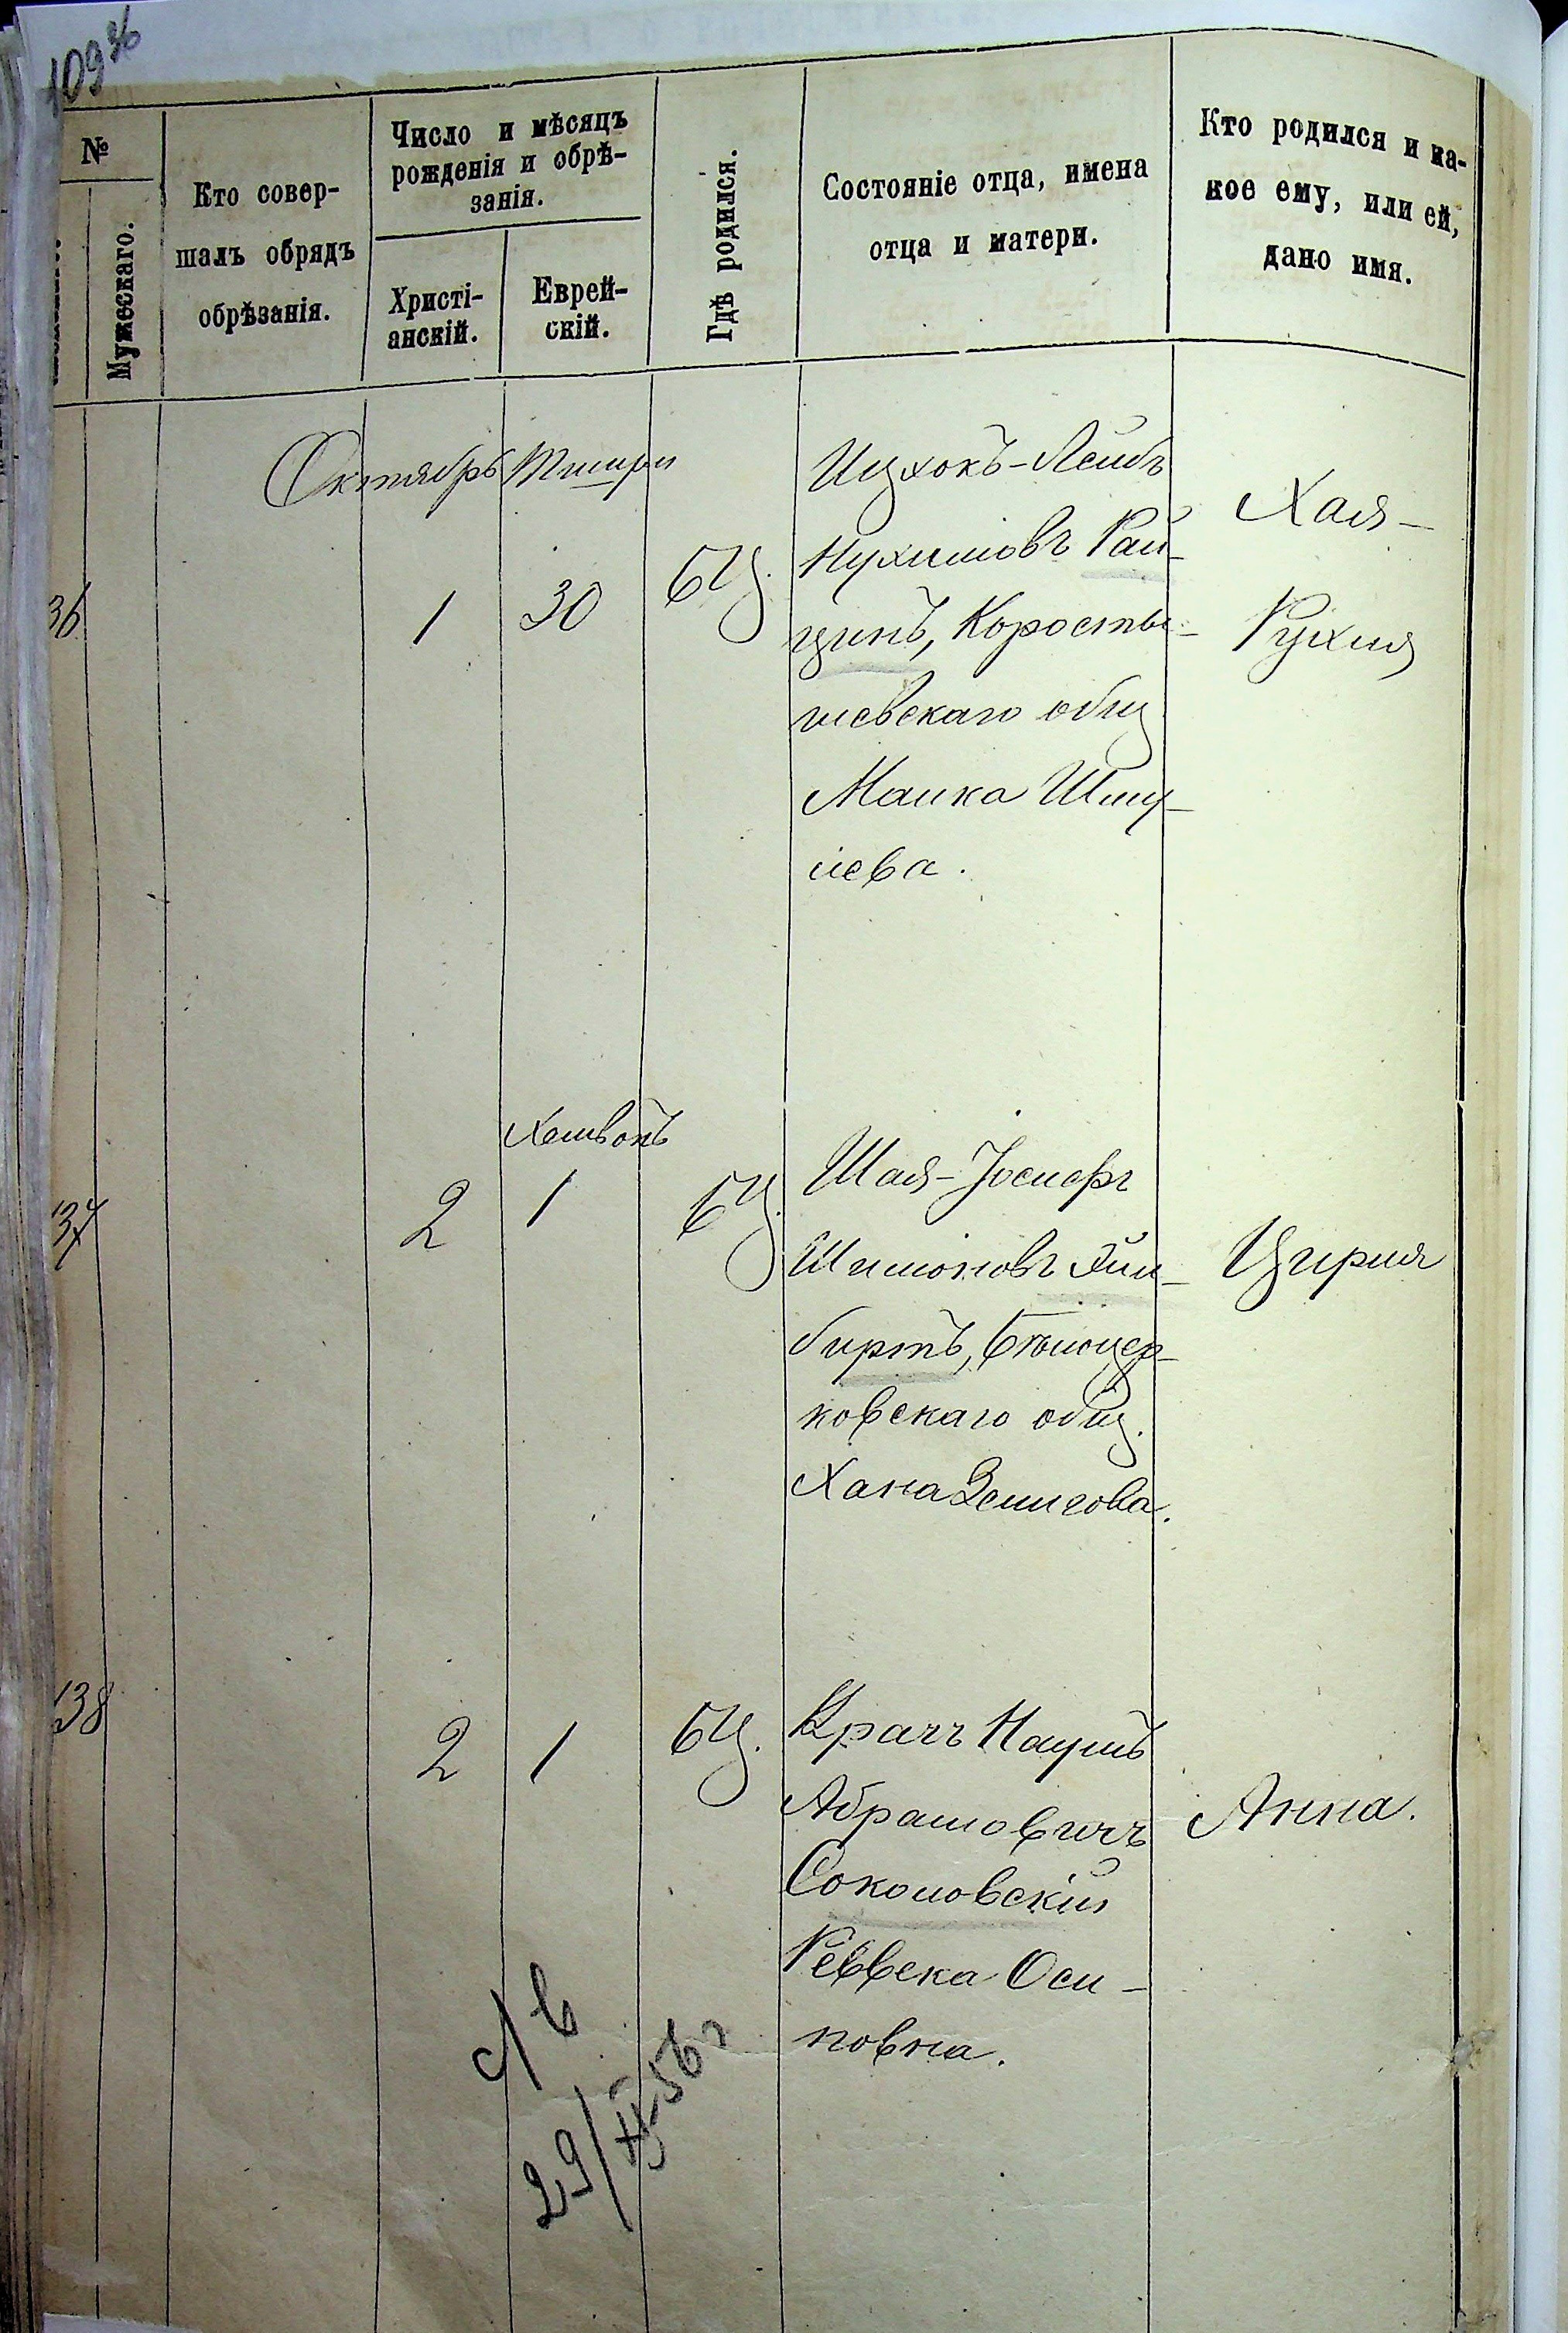 109 36
№
Мужескаго.
Кто совер-
шалъ обрядъ
обрѣзанія.
Число и мѣсяцъ
рожденія и обрѣ-
занія.
Христі-
анскій.
Еврей-
скій.
Гдѣ родился.
Состояніе отца, имена
отца и матери.
Кто родился и ка-
кое ему, или ей,
дано имя.
Октябрь Тишри
36
1
30
БЦ.
Ицхокъ-Лейбъ
Нухимовъ Рай-
цинъ, Коросты-
шевскаго общ
Малка Шму-
лева.
Хая-
Рухля
Хешвонъ
137
2
1
БЦ.
Шая-Іосифъ
Шимоновъ
Бѣлоцер-
ковскаго общ.
Хана Зелигова.
Цирля
138
2
1
БЦ.
Врачъ Наумъ
Абрамовичъ
Соколовскій
Реввека Оси-
повна.
Анна.
29/ 56 г